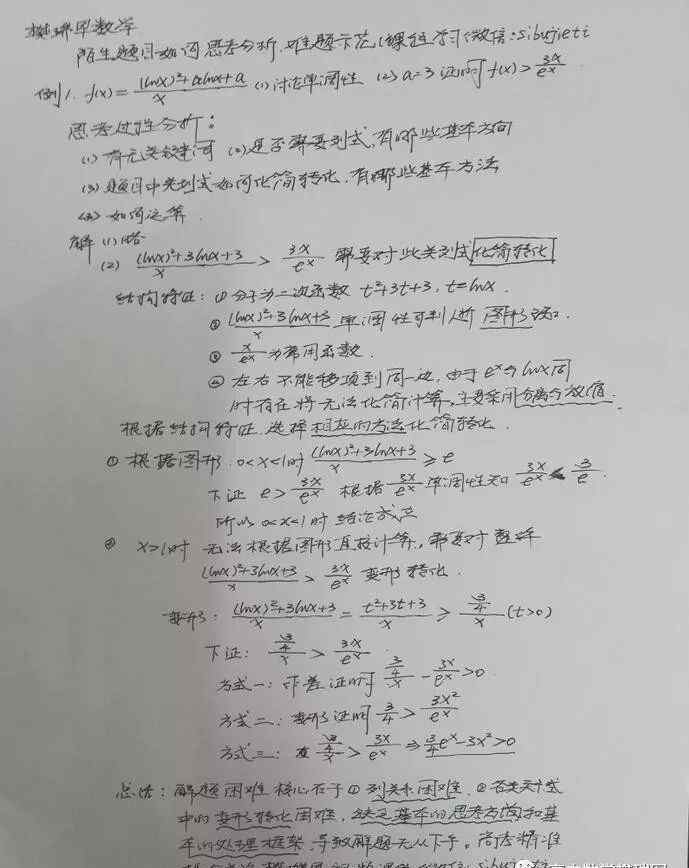 陌生题目如何思考分析.难题示范(课程学习微信:sibujieti
例1. f(x)=((lnx)²+alnx+a)/x (1)讨论单调性 (2) a=3 证明 f(x)>3x/eˣ
思考过程分析:
(1) 有无关键词 (2)是否需要列式,有哪些基本方向
(3) 题目中类型式如何化简转化.有哪些基本方法
如何运算.
解 (1) 略
(2) ((lnx)²+3lnx+3)/x > 3x/eˣ 需要对此类型式化简转化
结构特征: ① 分子为二次函数 t²+3t+3, t=lnx.
② ((lnx)²+3lnx+3)/x 单调性可判断 图形
③ x/eˣ 为常用函数.
④ 左右不能移项到同一边,由于 eˣ与lnx同
时存在将无法化简计算.主要采用分离与放缩.
根据结构特征.选择相应的方法化简转化.
① 根据图形. 0<x<1时 ((lnx)²+3lnx+3)/x ≥ e
下证 e > 3x/eˣ 根据 3x/eˣ 单调性知 3x/eˣ < 3/e.
所以 0<x<1时 结论成立
② x>1时 无法根据图形直接计算,需要对整体
((lnx)²+3lnx+3)/x > 3x/eˣ 变形转化.
变形: ((lnx)²+3lnx+3)/x = (t²+3t+3)/x ≥ (3/4)/x (t>0)
下证: (3/4)/x > 3x/eˣ.
方式一: 作差证明 (3/4)/x - 3x/eˣ >0.
方式二: 变形证明 3/4 > 3x²/eˣ
方式三: (3/4)/x > 3x/eˣ ⇒ 3/4eˣ-3x²>0
总结: 解题困难核心在于①列关系困难.②各类关系式
中的变形转化困难,缺乏基本的思考方向和基
本的处理框架.导致解题无从下手.高考精准